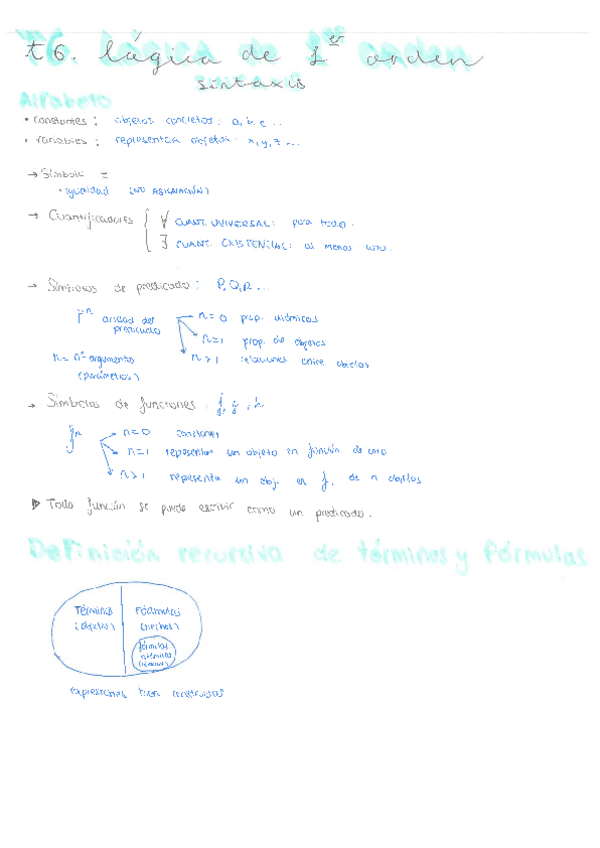 T6. lógica de 1er orden
sintaxis
Alfabeto
• constantes: objetos concretos: a, b, c ...
• variables: representan objetos: x, y, z ...
→ Símbolo =
• igualdad (NO ASIGNACIÓN)
→ Cuantificadores { ∀ CUANT. UNIVERSAL: para todo.
∃ CUANT. EXISTENCIAL: al menos uno.
→ Símbolos de predicado: P, Q, R ...
aridad del predicado
n=0 prop. atómicas
n=1 prop. de objetos
n>1 relaciones entre objetos
n = nº argumentos
(parámetros)
→ Símbolos de funciones: f, g, h
fⁿ n=0 constantes
n=1 representan un objeto en función de otro
n>1 representa un obj. en f. de n objetos
▷ Toda función se puede escribir como un predicado.
Definición recursiva de términos y fórmulas
Términos Fórmulas
(objetos) (hechos)
fórmulas
atómicas
expresiones bien construidas